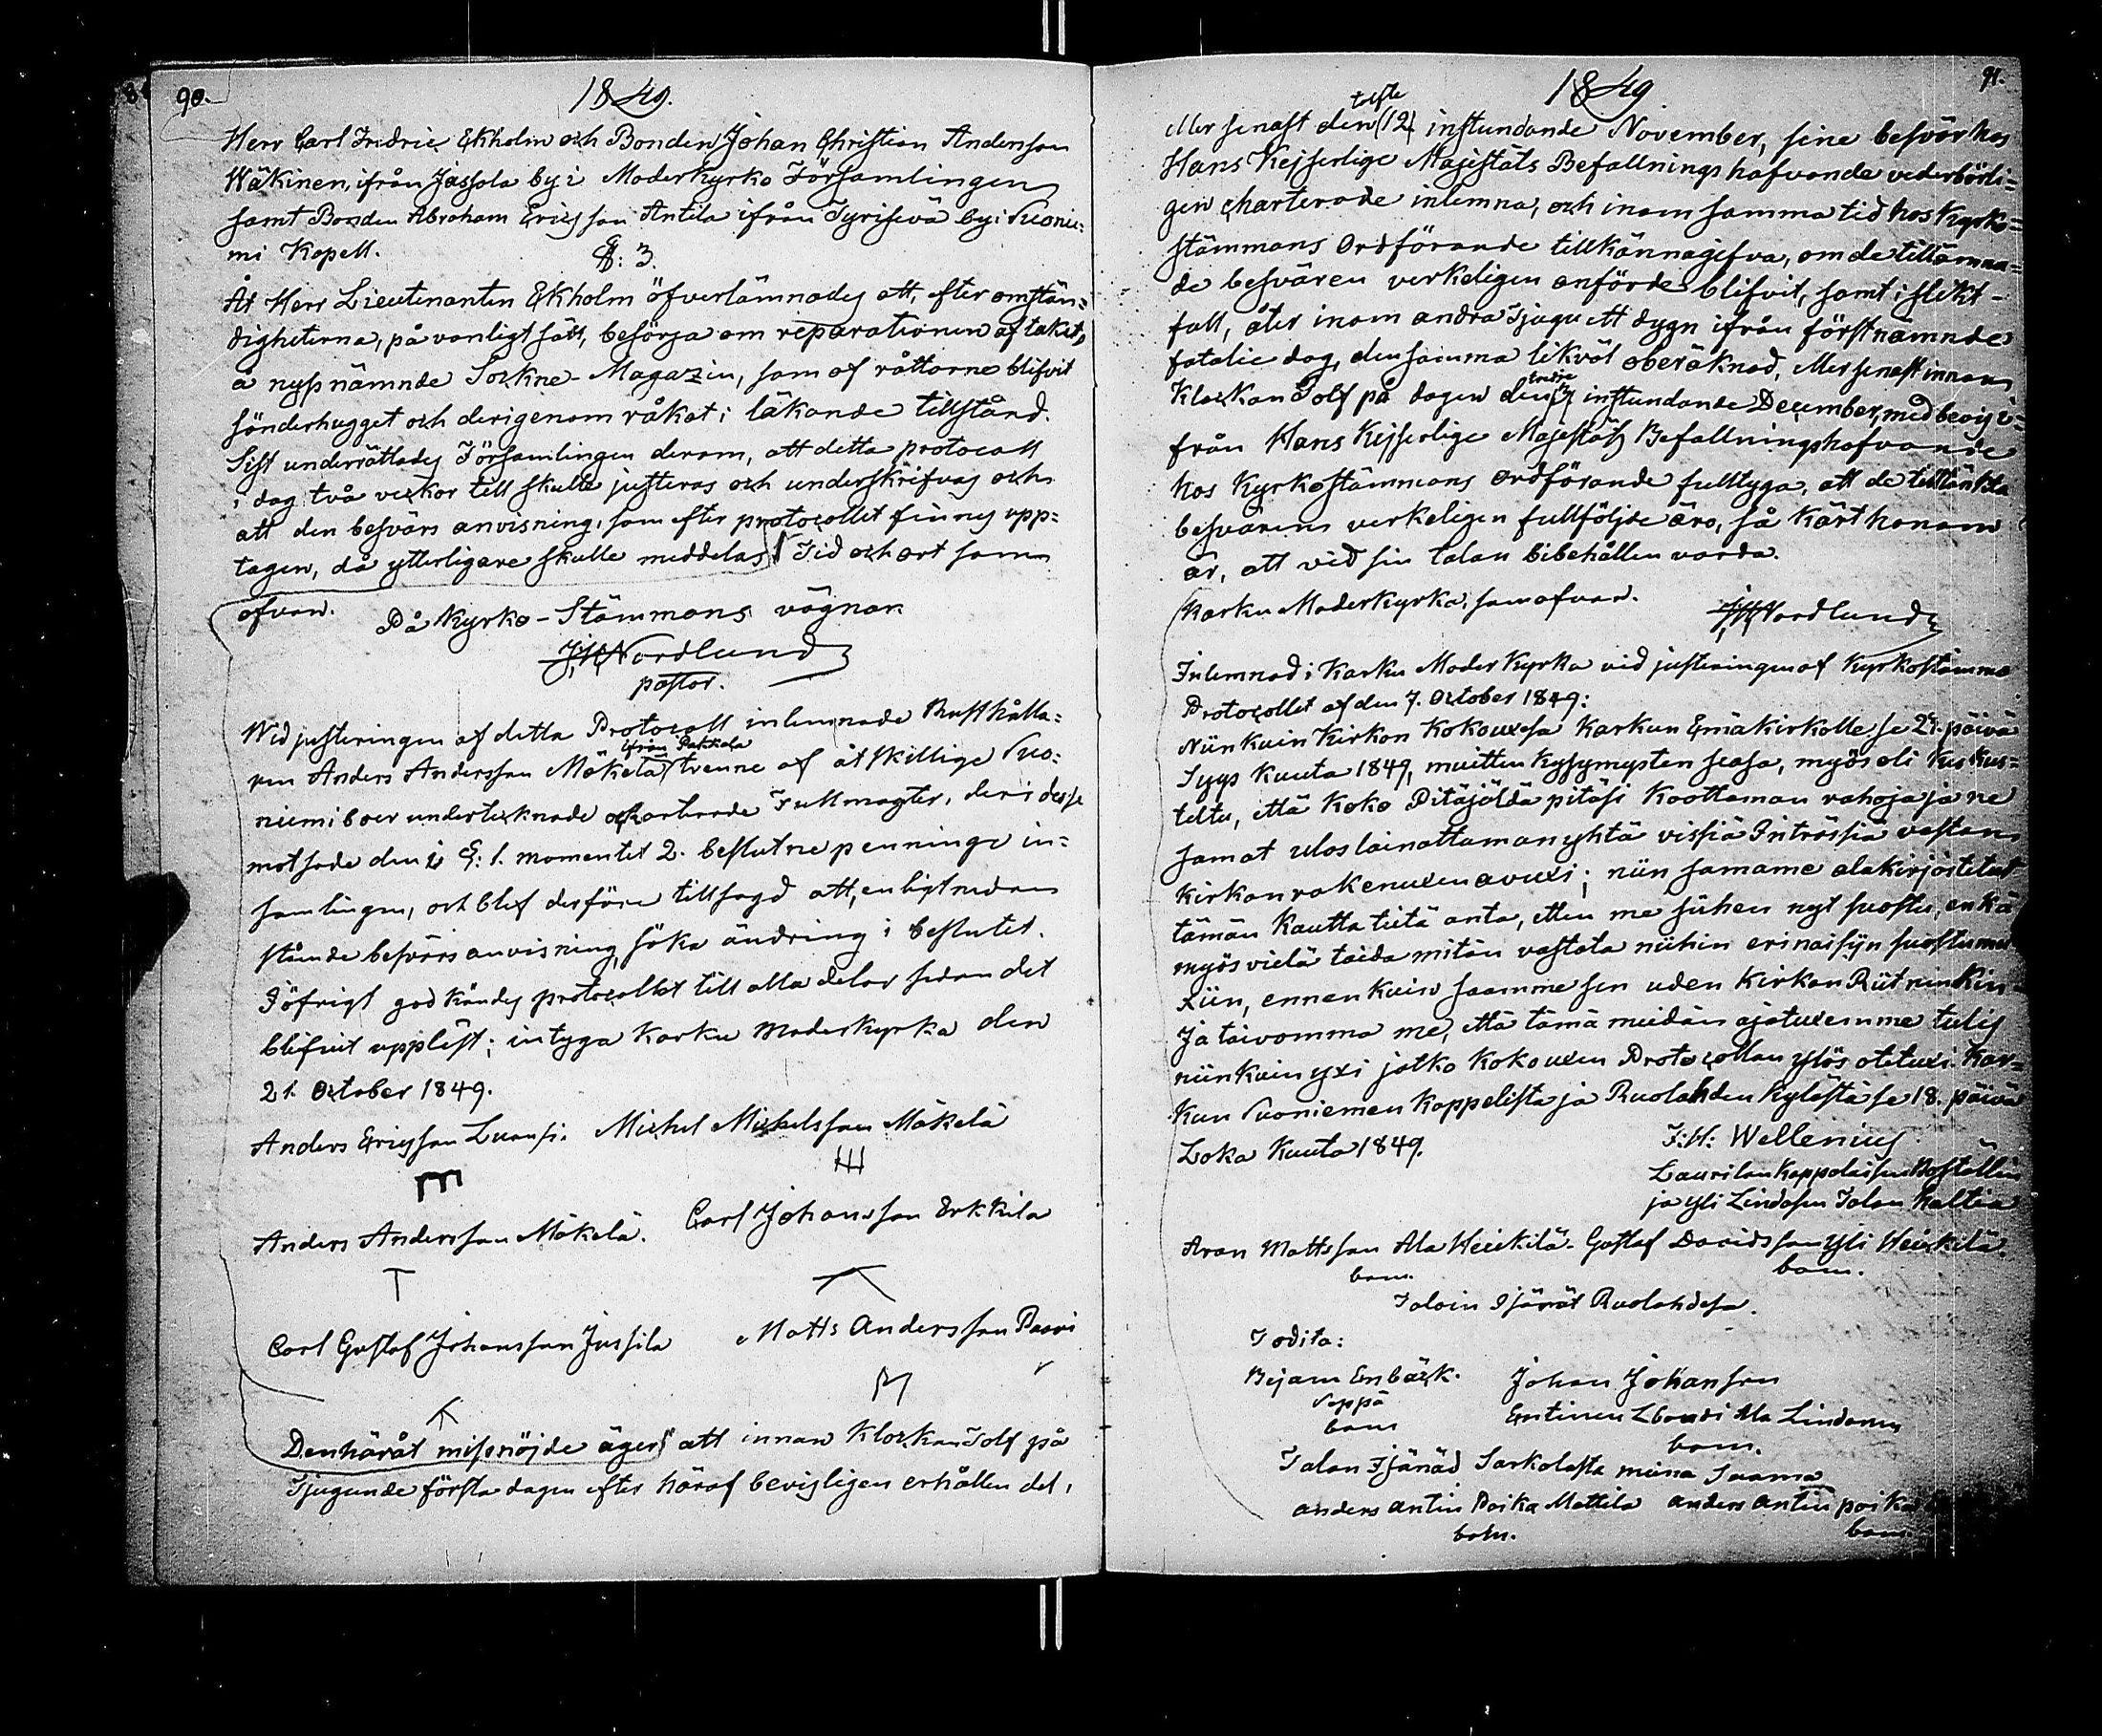 90.
1849.
Herr Carl Fredric Ekholm och Bonden Johan Christian Andersson
Wäkinen, ifrån Jassola by i Moderkyrko Församlingen
samt Bonden Abraham Ericsson Antila ifrån Tyrisevä by i Suonie=
mi Kapell.
§: 3.
Åt Herr Lieutenanten Ekholm öfverlämnades att, efter omstän=
digheterna, på vanligt sätt, besörja om reparationen af taket,
å nyssnämnde Sockne-Magazin, som af råttorne blifvit
sönderhugget och derigenom råkat i läkande tillstånd.
Sist underrättades Församlingen derom, att detta protocoll
i dag två veckor till skulle justeras och underskrifvas och
att den besvärs anvisning, som efter protocollet finnes upp=
tagen, då ytterligare skulle meddelas. Tid och ort som
ofvan.
På Kyrko-Stämmans vägnar
J.H. Nordlund
pastor.
Wid justeringen af detta Protocoll inlemnade Rusthålla=
ifrån Pakkala
ren Anders Andersson Mäkelä trenne af åtskillige Suo=
niemiboer undertecknade ocharterade Fullmagter, deri desse
motsade den i §: 1. momentet 2. beslutne penninge in=
samlingen, och blef derföre tillsagd att, enligt nedan
stående besvärsanvisning, söka ändring i beslutet.
I öfrigt godkändes protocollet till alla delar sedan det
blifvit uppläst; intyga Karku Moderkyrka den
21. October 1849.
Anders Ericsson Luansi. Michel Michelsson Mäkelä
Anders Andersson Mäkelä. Carl Johansson Erkkila
Carl Gustaf Johansson Jussila Matts Andersson Paavi
Den häråt missnöjde äger att innan Klockan Tolf på
Tjugunde första dagen efter häraf bevisligen erhållen del,
91.
1849
tolfte
eller senast den (12) instundande November, sine besvär hos
Hans Kejserlige Majestäts Befallningshafvande vederbörli=
gen charterade inlemna, och inom samma tid hos Kyrko=
stämmans Ordförande tillkännagifva, om de tillämna=
de besvären verkeligen anförde blifvit, samt i slikt
fall, åter inom andra Tjugu ett dygn ifrån förstnämnde
fatalie dag, densamma likväl oberäknad, eller senast innan
tredje
Klockan Tolf på dagen den 3 instundande December, med bevis i=
från Hans Kejserlige Majestäts Befallningshafvande
hos Kyrkostämmans Ordförande fulltyga, att de tilltänkta
besvären verkeligen fullföljde äro, så kärt honom
är, att vid sin talan bibehållen varda.
Karku Moderkyrka, som ofvan.
J.H. Nordlund
Inlemnad i Karku Moder Kyrka vid justeringen af Kyrkostämmo
Protocollet af den 7. October 1849:
Niinkuin Kirkon Kokouxesa Karkun Emäkirkolle se 21. päivä
Syys Kuuta 1849, muitten Kysymysten seasa, myös oli Kuskus=
teltu, että Koko Pitäjäldä pitäsi Koottaman rahoja ja ne
samat uloslainattaman yhtä vissiä Inträssiä vastan
Kirkon rakenuxen avuxi; niin samame alakirjoitetut
tämän Kautta tietä anta, etten me siihen nyt suostu, enkä
myös vielä taida mitän vastata niihin erinaisijn suostumu
xiin, ennenkuin saamme sen uden Kirkon Riitninkin
Ja toivomma me, että tämä meidän ajatuxemme tulis
niinkuin yxi jatko Kokouxen Protocollan ylös otetuxi. Kar=
kun Suoniemen Kappelista ja Ruolahden Kylästä se 18. päivä
Loka Kuuta 1849.
J:H: Wellenius
Laurilan Kappalaisen Boställin
ja Yli Lindosen Talon Haltia
Aron Mattsson Ala Heickilä. Gustaf Davidsson Yli Heickilä.
bom. bom.
Taloin Isännät Ruolahdesa.
Todista:
Bejam Enbäck. Johan Johansson
Seppä Entinen Lboudi Ala Lindonen
bom bom.
Talon Isänäd Sarkolasta meina Saama
anders antin Poika Mattila anders antin poika
bom. bom.